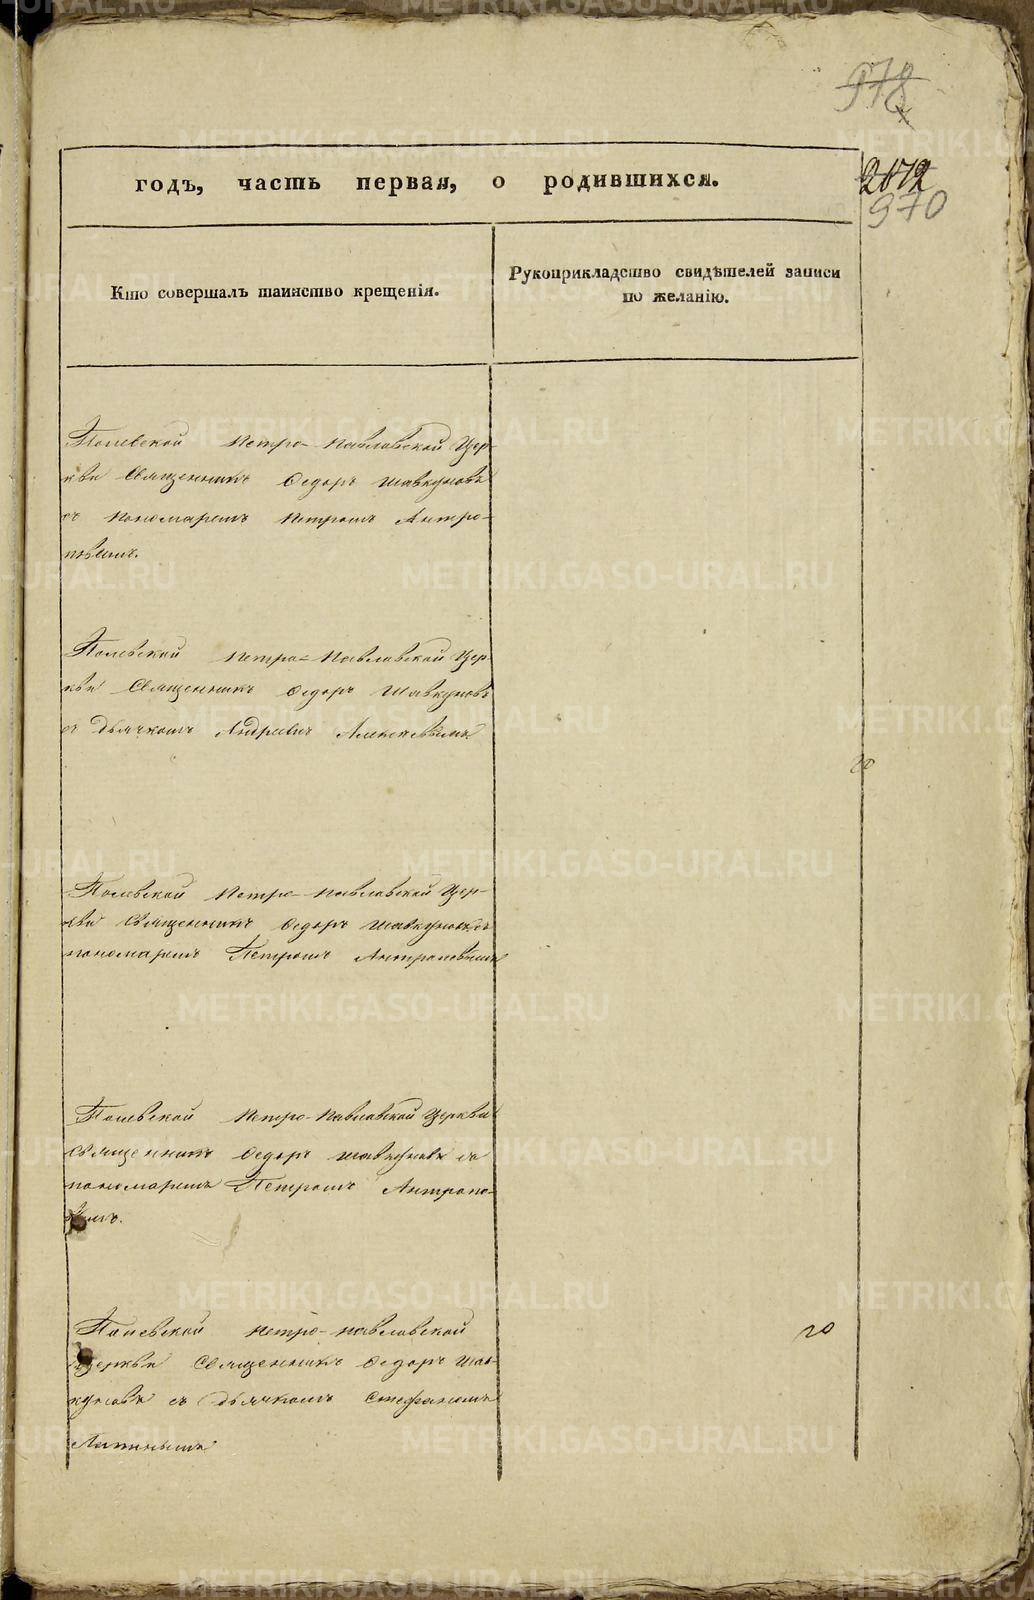 978
годъ, часть первая, о родившихся.
2012
970
Кто совершалъ таинство крещенія.
Рукоприкладство свидѣтелей записи
по желанію.
Полевской Петро-Павловской Цер-
кви Священникъ Ѳедоръ Шавкуновъ
съ пономаремъ Петромъ Антро-
повымъ.
Полевской Петро-Павловской Цер-
кви Священникъ Ѳедоръ Шавкуновъ
съ дьячкомъ
Полевской Петро-Павловской Цер-
кви Священникъ Ѳедоръ Шавкуновъ съ
пономаремъ Петромъ Антроповымъ
Полевской Петро-Павловской Церкви
Священникъ Ѳедоръ Шавкуновъ съ
пономаремъ Петромъ Антропо-
вымъ.
Полевской Петро-Павловской
Церкви Священникъ Ѳедоръ Шав-
куновъ съ дьячкомъ Стефаномъ
METRIKI.GASO-URAL.RU